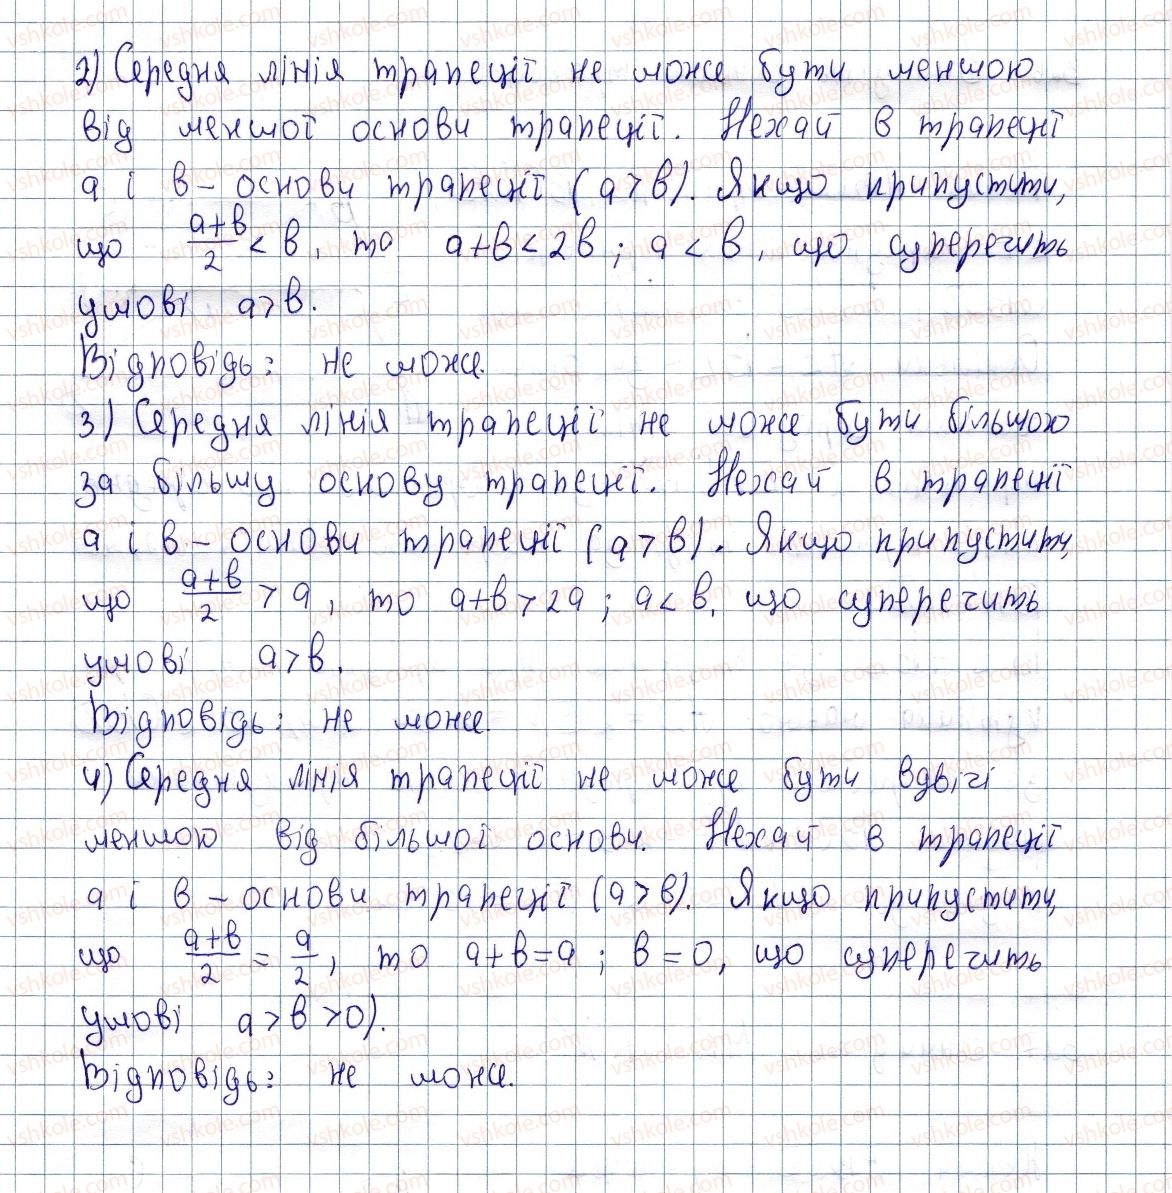 2) Середня лінія трапеції не може бути меншою
від меншої основи трапеції. Нехай в трапеції
a і b – основи трапеції (a > b). Якщо припустити,
що (a+b)/2 < b, то a+b < 2b; a < b, що суперечить
умові a > b.
Відповідь: не може.
3) Середня лінія трапеції не може бути більшою
за більшу основу трапеції. Нехай в трапеції
a і b – основи трапеції (a > b). Якщо припустити,
що (a+b)/2 > a, то a+b > 2a; a < b, що суперечить
умові a > b.
Відповідь: не може.
4) Середня лінія трапеції не може бути вдвічі
меншою від більшої основи. Нехай в трапеції
a і b – основи трапеції (a > b). Якщо припустити,
що (a+b)/2 = a/2, то a+b = a; b = 0, що суперечить
умові a > b > 0).
Відповідь: не може.
vshkole.com